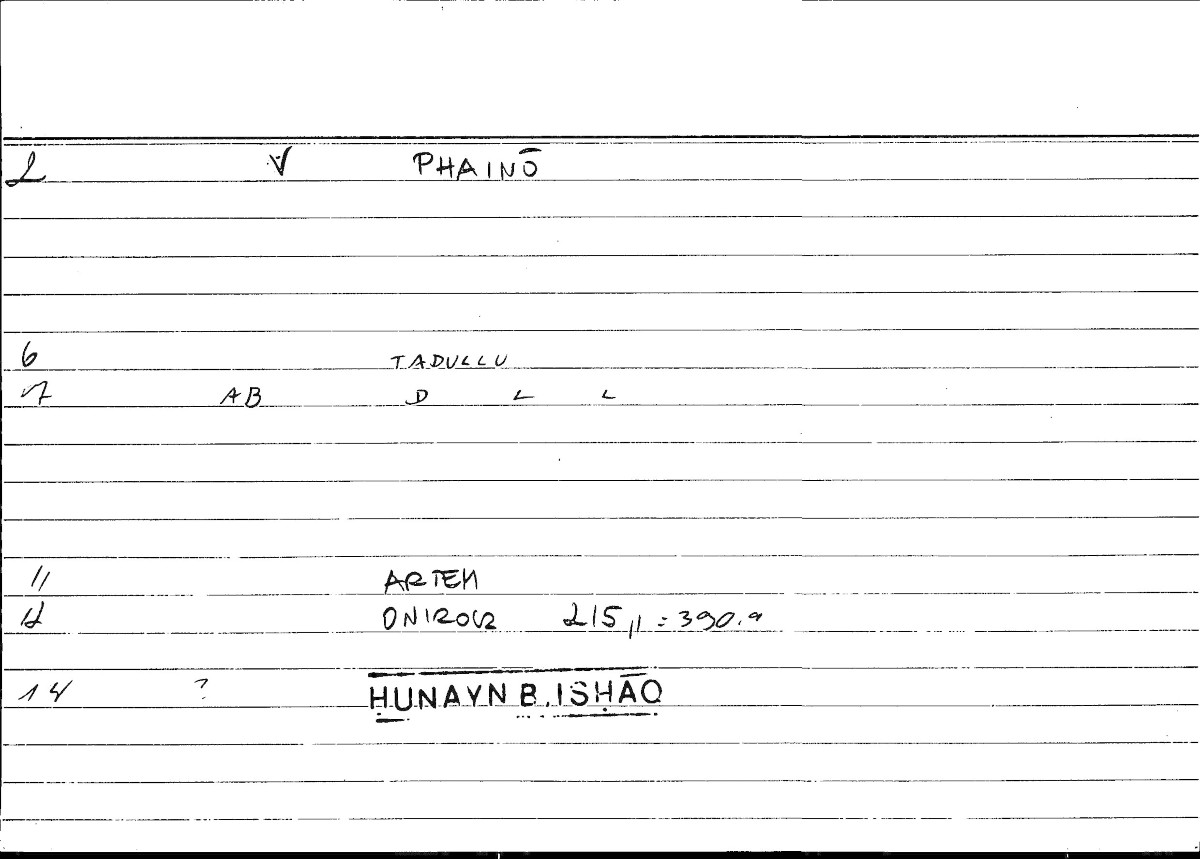 2 V PHAINŌ
6 TADULLU
7 AB D L L
11 ARTEM
12 ONIROCR 215,11 = 390.9
14 ? ḤUNAYN B. ISḤĀQ